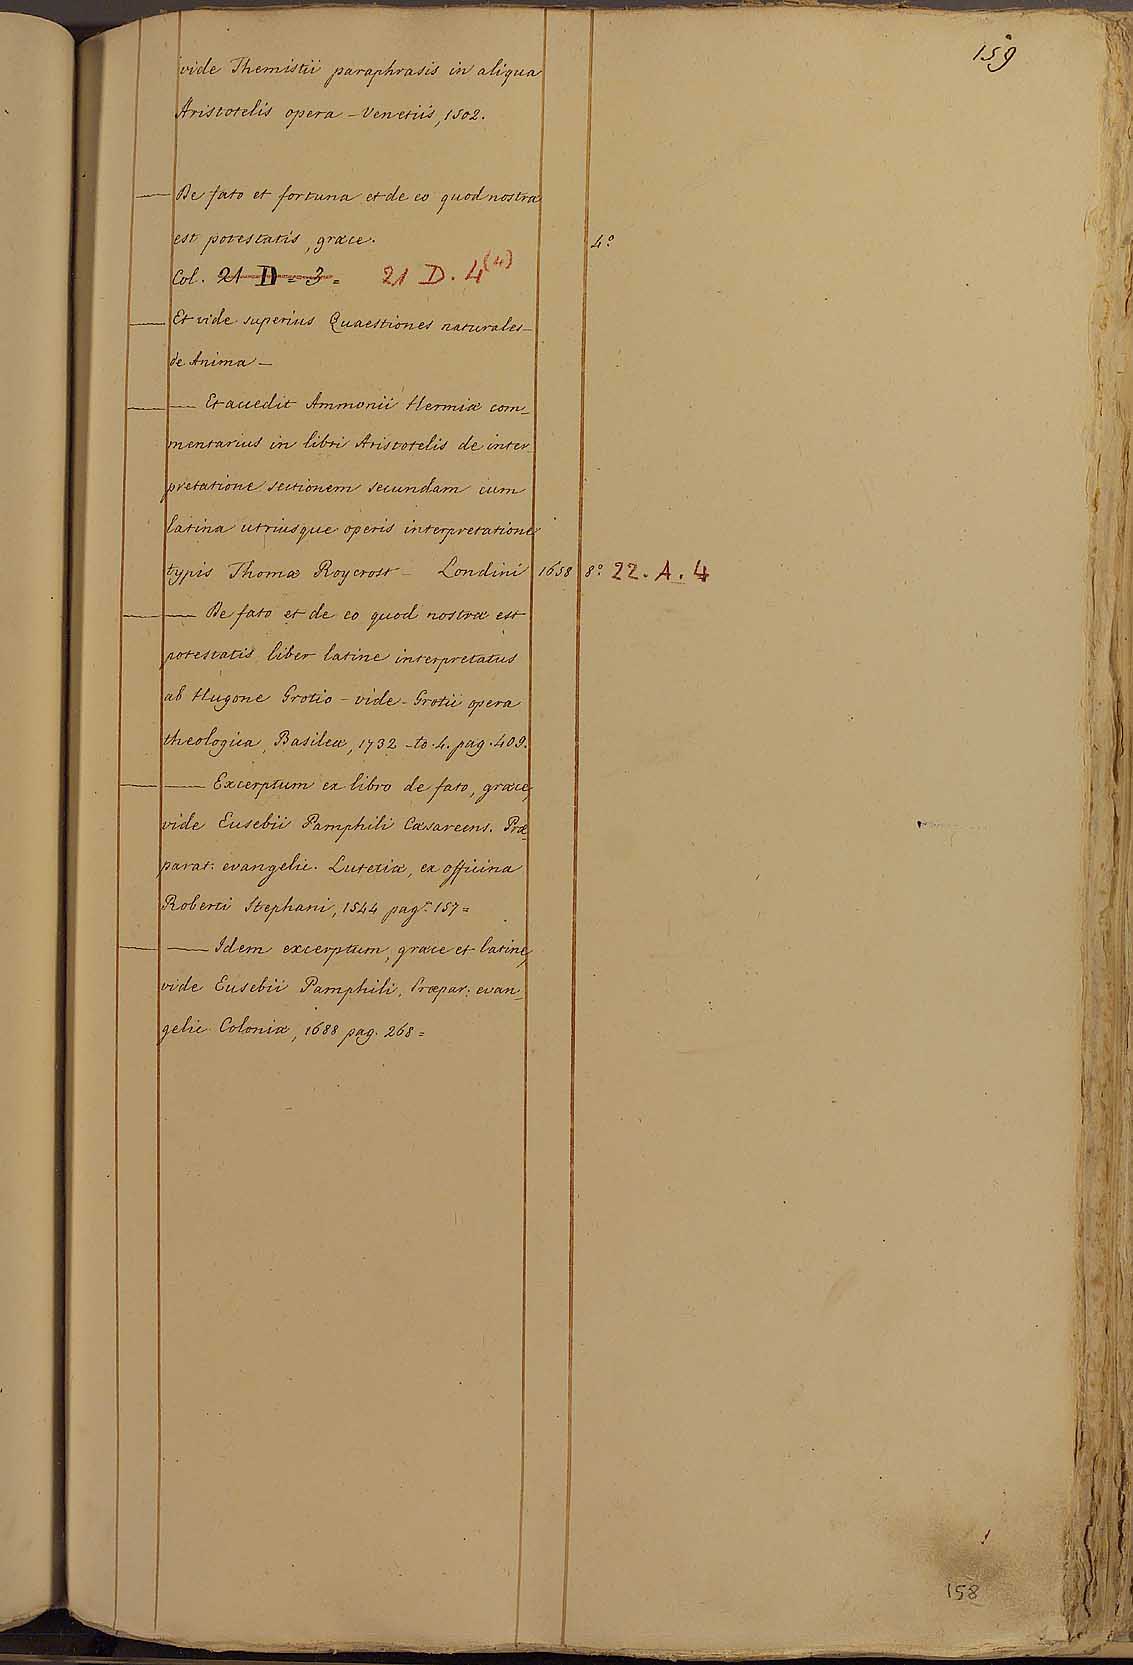 159
vide Themistii paraphrasis in aliqua
Aristotelis opera – Venetiis, 1502.
— De fato et fortuna et de eo quod nostra
est potestatis, græce. 4º
Col. 21 D = 3 = 21 D. 4(4)
— Et vide superius Quaestiones naturales –
de Anima –
— — Et accedit Ammonii Hermiæ com-
mentarius in libri Aristotelis de inter-
pretatione sectionem secundam cum
latina utriusque operis interpretatione
typis Thomæ Roycrost – Londini 1658 8º 22. A. 4
— — De fato et de eo quod nostræ est
potestatis liber latine interpretatus
ab Hugone Grotio – vide – Grotii opera
theologica, Basileæ, 1732 – to. 4. pag. 409.
— — Excerptum ex libro de fato, græce,
vide Eusebii Pamphili Cæsareens. Præ-
parat: evangelic. Lutetiæ, ex officina
Roberti Stephani, 1544 pag. 157 =
— — Idem excerptum, græce et latine,
vide Eusebii Pamphili, Præpar: evan-
gelic Coloniæ, 1688 pag. 268 =
158